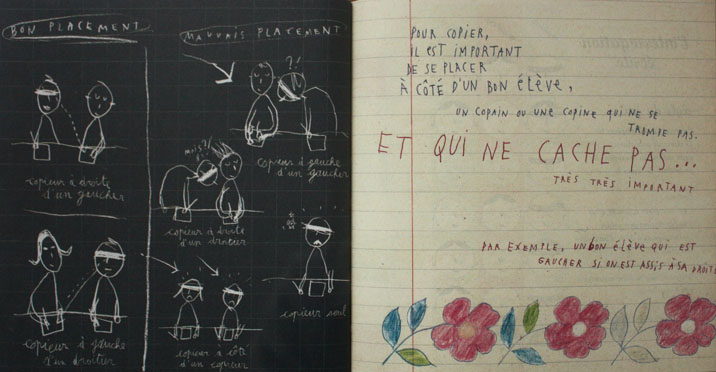 BON PLACEMENT
copieur à droite
d'un gaucher
copieur à gauche
d'un droitier
MAUVAIS PLACEMENT
?!
copieur à gauche
d'un gaucher
mais ?!
copieur à droite
d'un
copieur seul
copieur à côté
d'un copieur
POUR COPIER,
IL EST IMPORTANT
DE SE PLACER
À CÔTÉ D'UN BON ÉLÈVE,
UN COPAIN OU UNE COPINE QUI NE SE
TROMPE PAS.
ET QUI NE CACHE PAS...
TRÈS TRÈS IMPORTANT
PAR EXEMPLE, UN BON ÉLÈVE QUI EST
GAUCHER SI ON EST ASSIS À SA DROITE